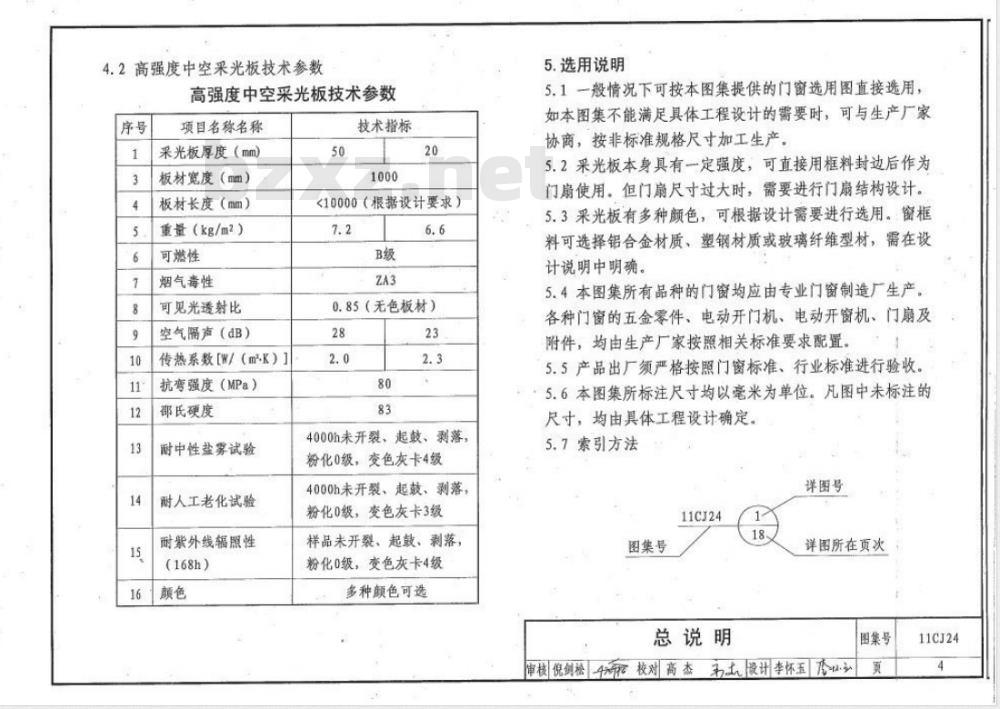 4.2 高强度中空采光板技术参数
高强度中空采光板技术参数
序号 项目名称名称 技术指标
1 采光板厚度（mm） 50 20
3 板材宽度（mm） 1000
4 板材长度（mm） <10000（根据设计要求）
5 重量（kg/m²） 7.2 6.6
6 可燃性 B级
7 烟气毒性 ZA3
8 可见光透射比 0.85（无色板材）
9 空气隔声（dB） 28 23
10 传热系数[W/（m²·K）] 2.0 2.3
11 抗弯强度（MPa） 80
12 邵氏硬度 83
13 耐中性盐雾试验 4000h未开裂、起鼓、剥落，
粉化0级，变色灰卡4级
14 耐人工老化试验 4000h未开裂、起鼓、剥落，
粉化0级，变色灰卡3级
15 耐紫外线辐照性 样品未开裂、起鼓、剥落，
（168h） 粉化0级，变色灰卡4级
16 颜色 多种颜色可选
bzxz.net
5.选用说明
5.1 一般情况下可按本图集提供的门窗选用图直接选用，
如本图集不能满足具体工程设计的需要时，可与生产厂家
协商，按非标准规格尺寸加工生产。
5.2 采光板本身具有一定强度，可直接用框料封边后作为
门扇使用。但门扇尺寸过大时，需要进行门扇结构设计。
5.3 采光板有多种颜色，可根据设计需要进行选用。窗框
料可选择铝合金材质、塑钢材质或玻璃纤维型材，需在设
计说明中明确。
5.4 本图集所有品种的门窗均应由专业门窗制造厂生产。
各种门窗的五金零件、电动开门机、电动开窗机、门扇及
附件，均由生产厂家按照相关标准要求配置。
5.5 产品出厂须严格按照门窗标准、行业标准进行验收。
5.6 本图集所标注尺寸均以毫米为单位。凡图中未标注的
尺寸，均由具体工程设计确定。
5.7 索引方法
详图号
11CJ24 1
18
图集号 详图所在页次
总说明 图集号 11CJ24
审核 倪剑松 校对 高杰 设计 李怀玉 页 4